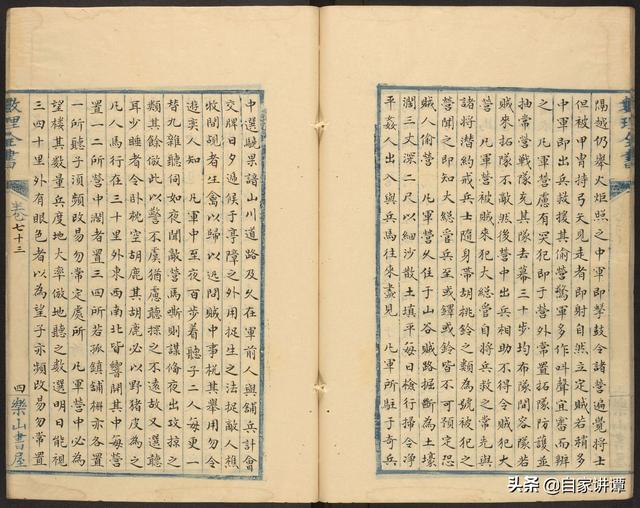 隅越仍舉火炬照之中軍即擊鼓令諸營遍覺將士
但被甲冑持弓矢見走者即射自然立定賊若稍多
中軍即出兵救援其偷營驚軍多作叫聲宜審而辦
之 凡軍營慮有哭犯即于營外常置拓隊防護並
抽常營戰隊充其隊去幕三十步均布隊間容隊若
賊來拓隊不敵然後營中出兵相助不得令賊犯大
營 凡軍營被賊來犯大總管自將兵救之常先與
諸將潛約戒兵士隨身帶胡桃鈴之類為號被犯之
營聞之即知大總管兵至或鐸或鈴皆不可預定恐
賊人偷營 凡軍營久住于山谷賊路掘斷為土壕
濶三丈深二尺以細沙散土填平每日檢行掃令淨
平姦人出入與兵馬往來盡見 凡軍所駐于奇兵
中選驍果諳山川道路及久在軍前人與舖兵計會
交牌日夕邏候于亭障之外用捉生之法捉敵人樵
牧間覘者生禽以歸以問賊中事其舉用勿令
遊奕人知 凡軍中至夜百步着聽子二人每更一
替九雜聽伺如夜聞敵營馬嘶則謀偹夜出掠之
類其餘倣此以警不虞猶慮聽採之不遠故又選聽
耳少睡者令卧枕空胡鹿其胡鹿必以野猪皮為之
凡人馬行在三十里外東西南北皆響聞其中每營
置一二所營中濶者置三四所若孤鎮舖柵亦各置
一所聽子須頻改易勿常定處所 凡軍營中必為
望楼其数量兵度地大率倣地聽之数選明目能視
三四十里外有眼色者以為望子亦頻改易勿常置
數理全書
卷七十三
四
樂山書屋
頭条 @自家讲谭